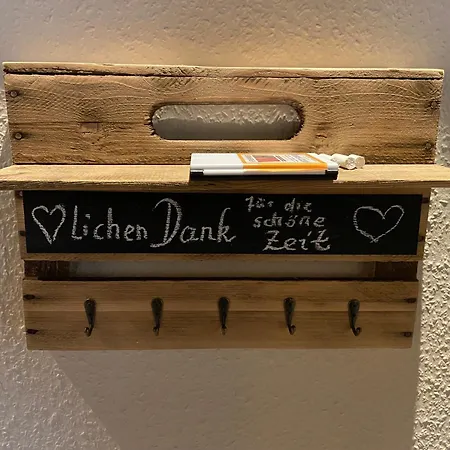 ♡lichen Dank
für die
schöne
Zeit ♡